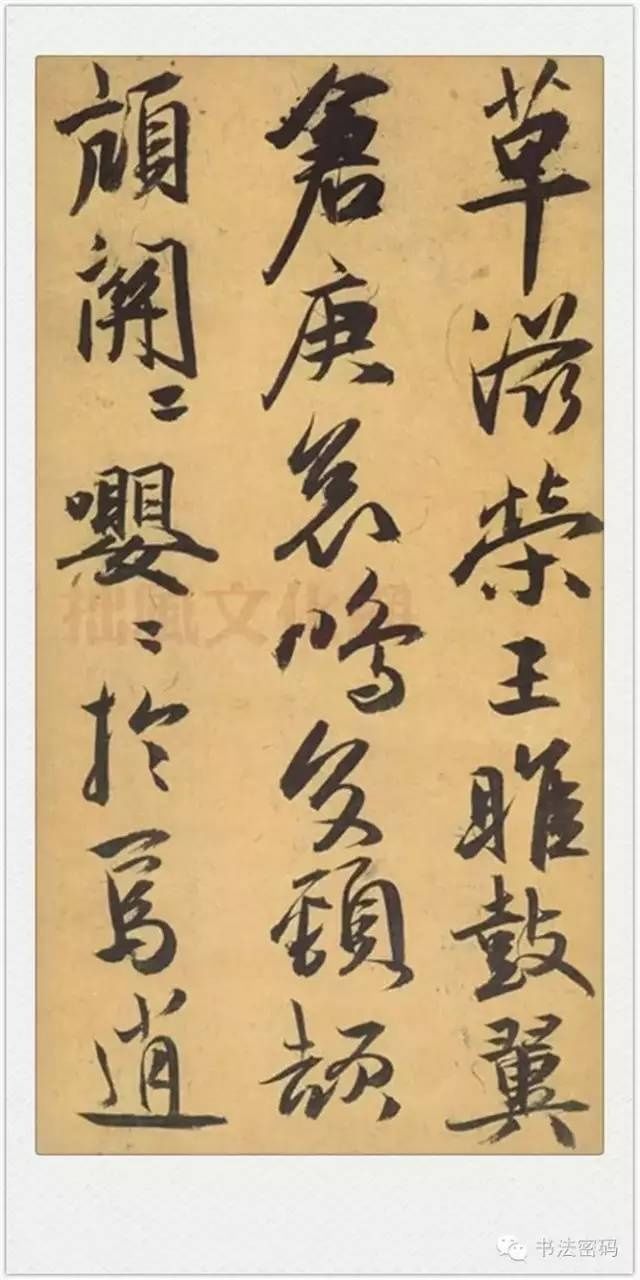 草滋榮王雎鼓翼
倉庚哀鳴交頸頡
頏關〻嚶〻於焉逍
拙風文化網
书法密码